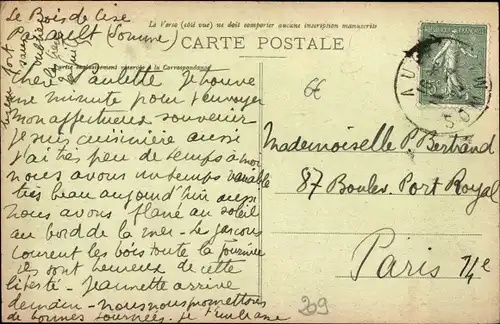 Le Bois de Cise
(Somme)
Le Verso (côté vue) ne doit comporter aucune inscription manuscrite
CARTE POSTALE
réservée à la Correspondance
Chère Paulette Je trouve
une minute pour t'envoyer
mon affectueux souvenir
Je suis cuisinière aussi
j'ai très peu de temps à moi
nous avons un temps variable
très beau aujourd'hui aussi
nous avons flané au soleil
au bord de la mer - Le garçons
courent les bois toute la journée
ils sont heureux de cette
liberté - Jeannette arrive
demain - nous nous promettons
de bonnes journées. Je t'embrasse
Mademoiselle P. Bertrand
87 Boulev. Port Royal
Paris 14e
209